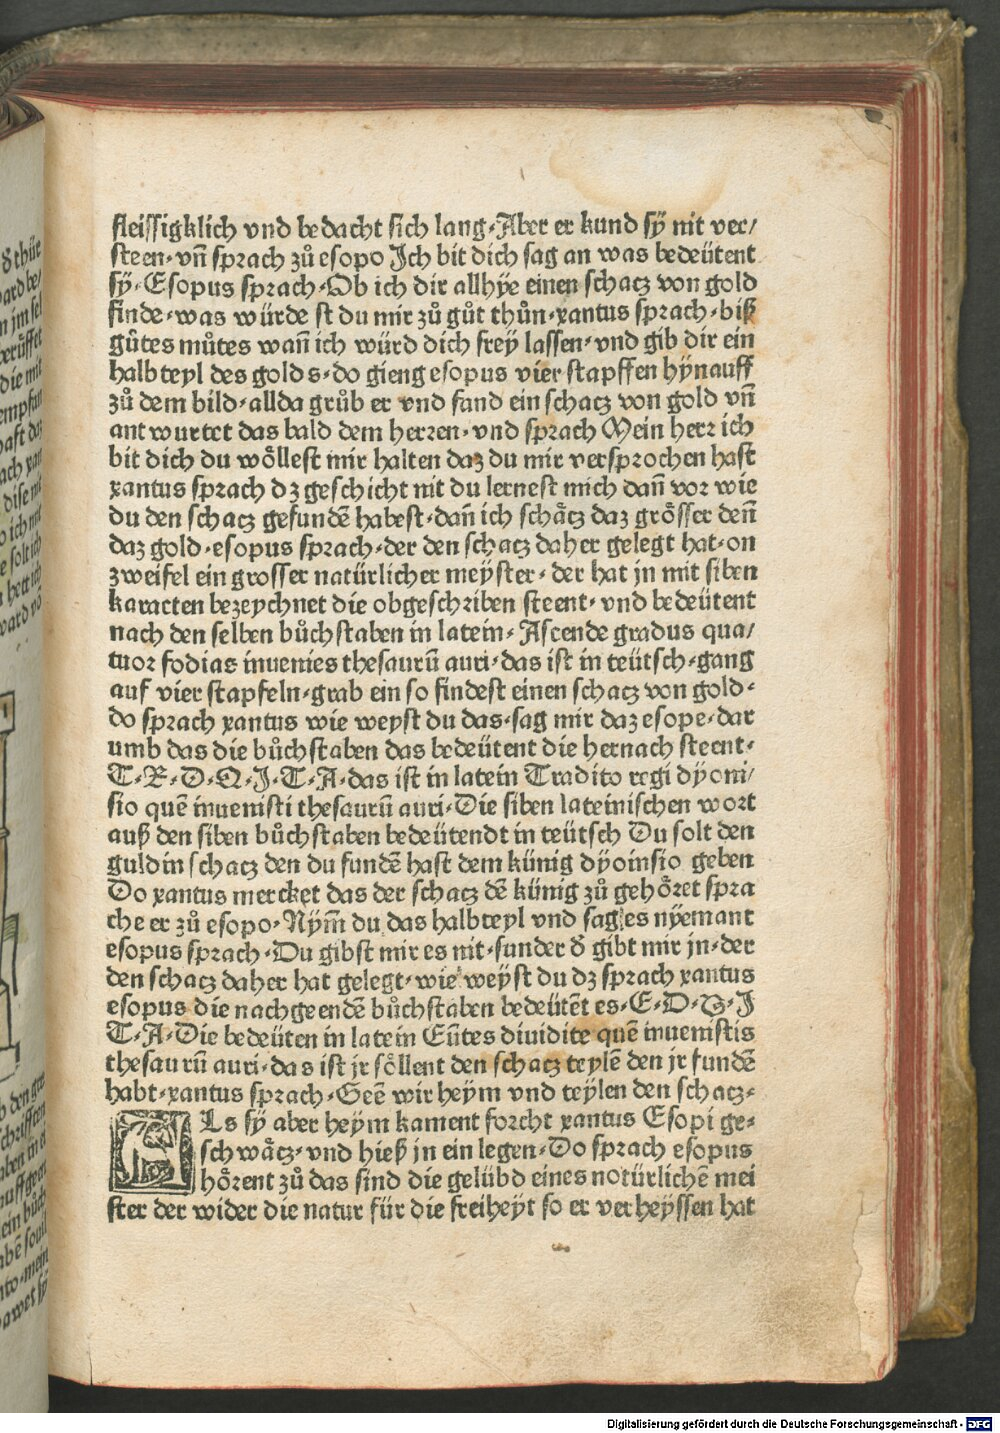 fleissigklich vnd bedacht sich lang·Aber er kund sÿ nit ver/
steen·vn̄ sprach zů esopo Ich bit dich sag an was bedeütent
sÿ·Esopus sprach·Ob ich dir allhÿe einen schacz von gold
finde·was würdest du mir zů gůt thůn·xantus sprach·biß
gůtes můtes wan̄ ich würd dich freÿ lassen·vnd gib dir ein
halbteyl des golds·do gieng esopus vier stapffen hÿnauff
zů dem bild·allda grůb er vnd fand ein schacz von gold vn̄
antwurtet das bald dem herren·vnd sprach Mein herr ich
bit dich du wöllest mir halten daz du mir versprochen hast
xantus sprach dz geschicht nit du lernest mich dan̄ vor wie
du den schacz gefundē habest·dan̄ ich schäcz daz grösser den̄
daz gold·esopus sprach·der den schacz daher gelegt hat·on
zweifel ein grosser natürlicher meÿster·der hat jn mit siben
karacten bezeychnet die obgeschriben steent·vnd bedeütent
nach den selben bůchstaben in latein·Ascende gradus qua/
tuor fodias inuenies thesaurū auri·das ist in teütsch·gang
auf vier stapfeln·grab ein so findest einen schacz von gold·
do sprach xantus wie weyst du das·sag mir daz esope·dar
umb das die bůchstaben das bedeütent die hernach steent·
T·R·D·Q·I·T·A·das ist in latein Tradito regi dÿoni/
sio quē inuenisti thesaurū auri·Die siben lateinischen wort
auß den siben bůchstaben bedeütendt in teütsch Du solt den
guldin schacz den du fundē hast dem künig dÿoinsio geben
Do xantus mercket das der schacz dē künig zů gehöret spra
che er zů esopo·Nÿm̄ du das halbteyl vnd sag es nÿemant
esopus sprach·Du gibst mir es nit·sunder d̄ gibt mir jn·der
den schacz daher hat gelegt·wie weÿst du dz sprach xantus
esopus die nachgeendē bůchstaben bedeütēt es·E·D·Q·I
T·A·Die bedeüten in latein Eūtes diuidite quē inuenistis
thesaurū auri·das ist jr söllent den schacz teylē den jr fundē
habt·xantus sprach·Geē wir heÿm vnd teÿlen den schacz·
ALs sÿ aber heÿm kament forcht xantus Esopi ge·
schwäcz·vnd hieß jn ein legen·Do sprach esopus
hörent zů das sind die gelübd eines notürlichē mei
ster der wider die natur für die freiheÿt so er verheÿssen hat
Digitalisierung gefördert durch die Deutsche Forschungsgemeinschaft - DFG